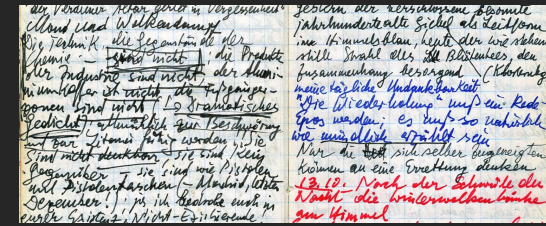 der Veroneser Altar gerät in Vergessenheit"
Mond und Wolkendampf
Die Technik, die Gegenstände der
Chemie – sind nicht, die Produkte
der Industrie sind nicht, der Alumi-
niumkoffer ist nicht, die
sind nicht (→ Dramatisches
Gedicht) allmählich zur Beschwörung
und zur Litanei führig werden, Sie
sind nicht denkbar – Sie sind kein
Gegenüber – sie sind wie Pistolen
und Pistolentaschen (– Madrid, letzter
Dezember!) ja, ich bedrohe euch in
eurer Existenz, Nicht-Existierende!
gestern der verschwissene besonnte
jahrhundertealte Giebel als Leitform
im Himmelsblau, heute der wie stehen
stille Strahl des Blühenden, den
Zusammenhang besorgend
meine tägliche Undankbarkeit
"Die Wiederholung" muß ein Rede-
Epos werden; es muß so natürlich
wie mündlich erzählt sein
Nur die sich selber
können an eine Errettung denken
13.10. Nach der Schwüle der
Nacht die Winterwolkenbänke
am Himmel